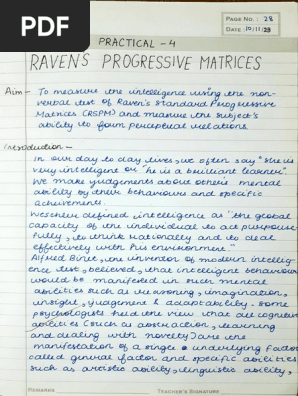 PDF
PAGE No.: 28
DATE: 10/11/23
PRACTICAL - 4
RAVEN'S PROGRESSIVE MATRICES
Aim - To measure the intelligence using the non-
verbal test of Raven's Standard Progressive
Matrices (RSPM) and measure the subject's
ability to form perceptual relations.
Introduction -
In our day to day lives, we often say "she is
very intelligent or "he is a brilliant learner".
We make judgements about other's mental
ability by their behaviours and specific
achievements.
Weschler defined intelligence as "the global
capacity of the individual to act purpose
fully, to think rationally and to deal
effectively with his environment"
Alfred Binet, the inventor of modern intellig-
ence test, believed, that intelligent behaviour
would be manifested in such mental
abilities such as reasoning, imagination,
insight, judgement & adaptability. Some
psychologists held the view that all cognitive
abilities (such as abstraction, learning
and dealing with novelty) are the
manifestation of a single & underlying factor
called general factor and specific abilities
such as artistic ability, linguistic ability,
REMARKS
TEACHER'S SIGNATURE